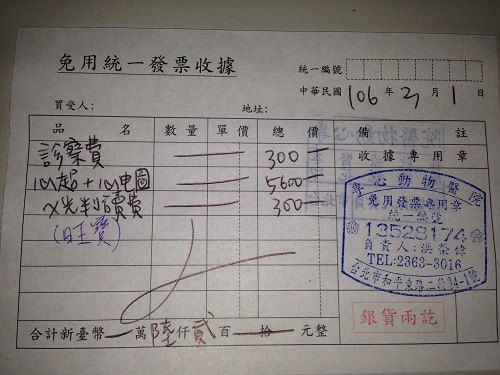 免用統一發票收據
統一編號
中華民國 106 年 月 1 日
買受人: 地址:
品名 數量 單價 總價 備註
診察費 300 收據專用章
心超+心電圖 5600
X光判讀費 300
(旺寶)
專心動物醫院
免用發票專用章
統一編號
13528174
負責人:洪榮偉
TEL:2363-3016
台北市和平東路二段34-1號
銀貨兩訖
合計新臺幣 萬 陸 仟 貳 百 拾 元整